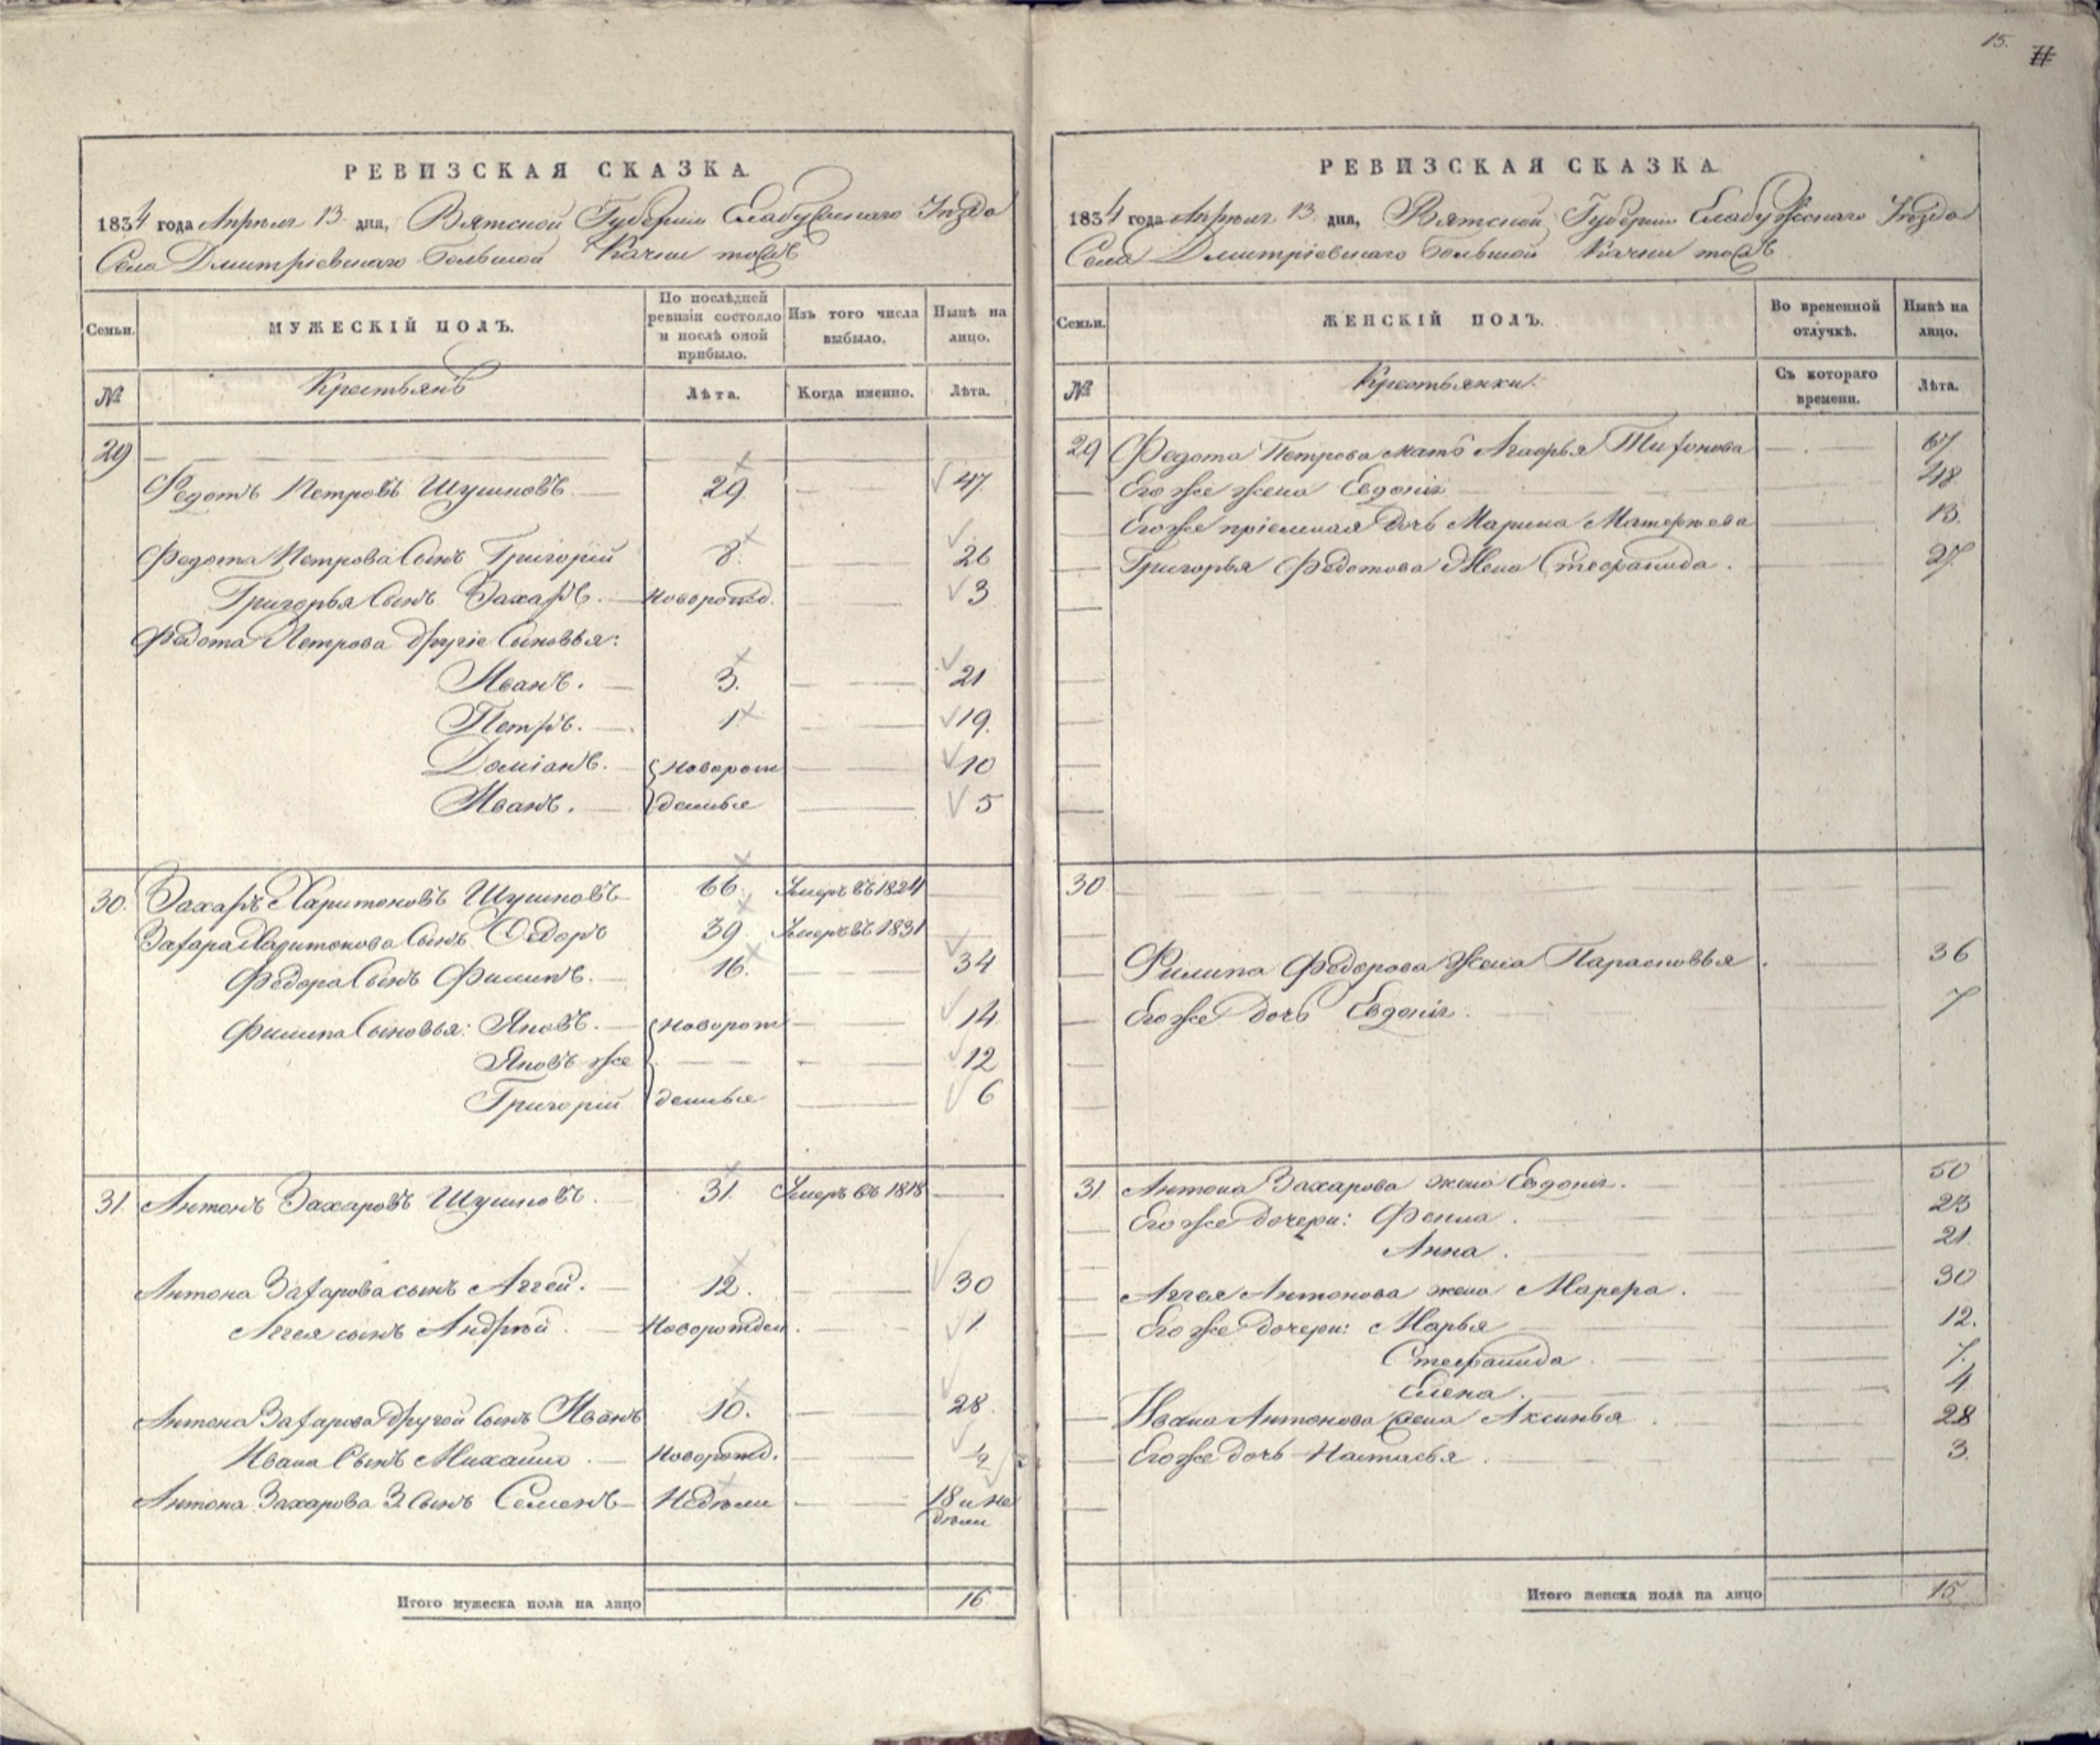 15.
РЕВИЗСКАЯ СКАЗКА.
1834 года Апреля 13 дня, Вятской Губернiи Елабужскаго Уѣзда
Села Дмитрiевскаго Большой Качки тожъ
Семьи.
МУЖЕСКIЙ ПОЛЪ.
По послѣдней ревизiи состояло и послѣ оной прибыло.
Изъ того числа выбыло.
Нынѣ на лицо.
№
Крестьянъ
Лѣта.
Когда именно.
Лѣта.
29
Федотъ Петровъ Шушковъ. 29. 47.
Федота Петрова Сынъ Григорiй 8. 26
Григорья Сынъ Захаръ. Новорожд. 3
Федота Петрова другiе Сыновья:
Иванъ. 3. 21
Петръ. 1 19.
Домiанъ. Новорож 10
Иванъ. денные 5
30. Захаръ Харитоновъ Шушковъ 66. Умеръ въ 1824
Захара Харитонова Сынъ Федоръ 39 Умеръ въ 1831
Федора Сынъ Филипъ. 16. 34
Филипа Сыновья: Яковъ. Новорож 14
Яковъ же 12
Григорiй денные 6
31. Антонъ Захаровъ Шушковъ. 31. Умеръ въ 1818
Антона Захарова сынъ Аггей. 12. 30
Аггея сынъ Андрѣй. Новорожден. 1
Антона Захарова другой Сынъ Иванъ 10. 28
Ивана Сынъ Михайло. Новорожд.
Антона Захарова 3. Сынъ Семенъ Недѣли 18 и не
дѣли
Итого мужеска пола на лицо 16
РЕВИЗСКАЯ СКАЗКА.
1834 года Апреля 13 дня, Вятской Губернiи Елабужскаго Уѣзда
Села Дмитрiевскаго Большой Качки тожъ
Семьи.
ЖЕНСКIЙ ПОЛЪ.
Во временной отлучкѣ.
Нынѣ на лицо.
№
Крестьянки.
Съ котораго времени.
Лѣта.
29 Федота Петрова мать Агафья Тифонова 67
Его же жена Евдокiя 48
Его же прiемная дочь Марина 13.
Григорья Федотова Жена Стефанида. 27.
30
Филипа Федорова Жена Парасковья. 36
Его же дочь Евдокiя. 7
31 Антона Захарова жена Евдокiя. 50
Его же дочери: Фекла. 23
Анна. 21
Аггея Антонова жена Марфа. 30
Его же дочери: Марья 12.
Стефанида. 7.
Елена. 4
Ивана Антонова жена Аксинья. 28
Его же дочь Настасья. 3.
Итого женска пола на лицо 15